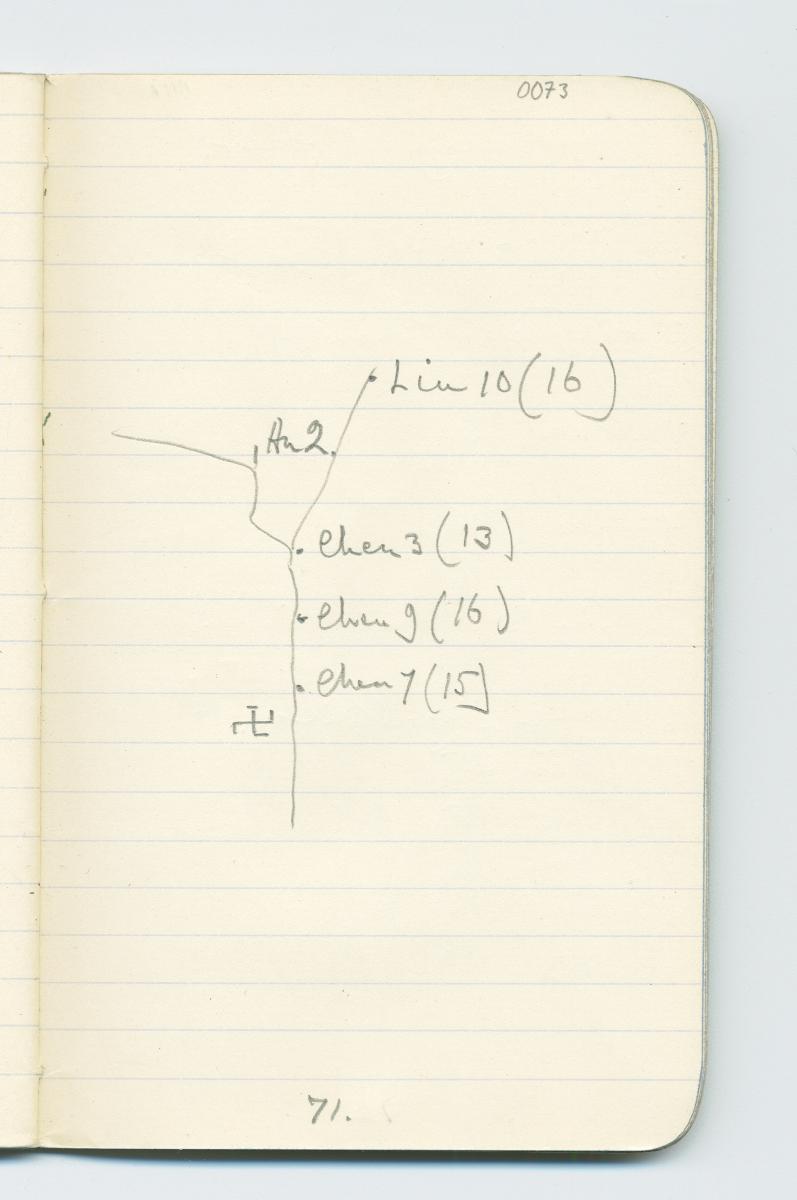 0073
Liu 10 (16)
An 2.
Chen 3 (13)
Chen 9 (16)
Chen 7 (15)
卐
71.